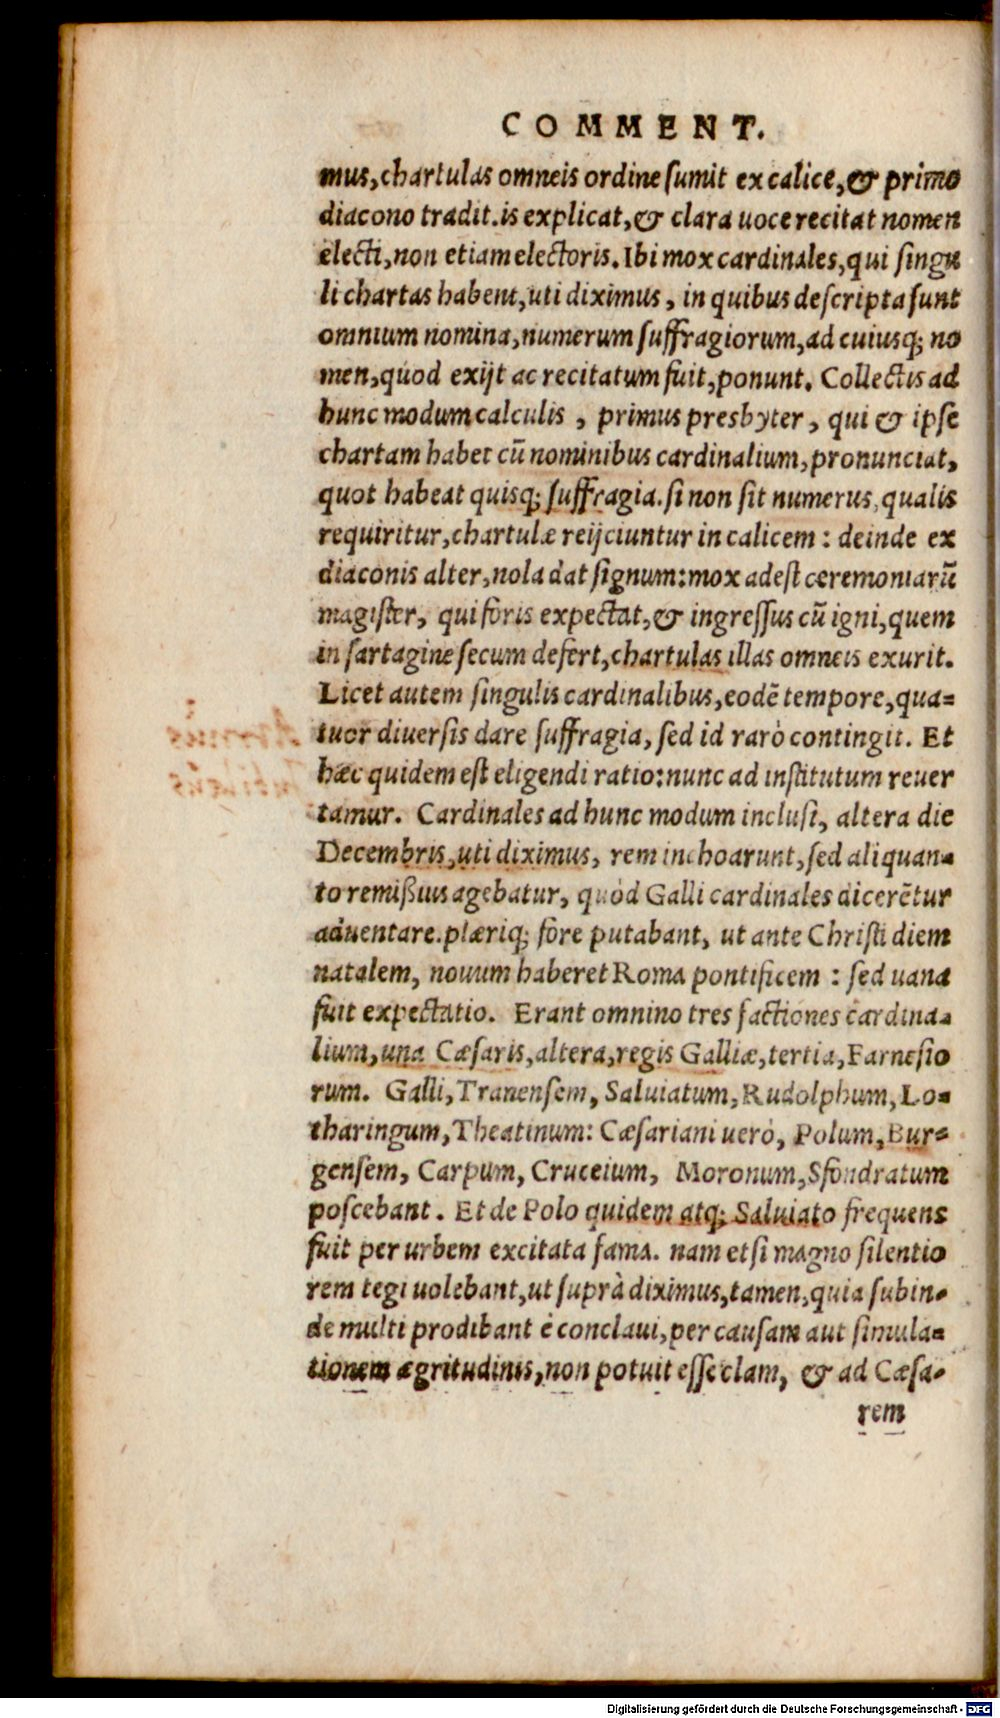 COMMENT.
mus, chartulas omneis ordine ſumit ex calice, & primo
diacono tradit. is explicat, & clara uoce recitat nomen
electi, non etiam electoris. Ibi mox cardinales, qui ſingu
li chartas habent, uti diximus, in quibus deſcripta ſunt
omnium nomina, numerum ſuffragiorum, ad cuiusq; no
men, quod exijt ac recitatum fuit, ponunt. Collectis ad
hunc modum calculis, primus presbyter, qui & ipſe
chartam habet cū nominibus cardinalium, pronunciat,
quot habeat quisq; ſuffragia. ſi non ſit numerus, qualis
requiritur, chartulæ reijciuntur in calicem: deinde ex
diaconis alter, nola dat ſignum: mox adeſt ceremoniarū
magiſter, qui foris expectat, & ingreſſus cū igni, quem
in ſartagine ſecum defert, chartulas illas omneis exurit.
Licet autem ſingulis cardinalibus, eodē tempore, qua=
tuor diuerſis dare ſuffragia, ſed id rarò contingit. Et
hæc quidem eſt eligendi ratio: nunc ad inſtitutum reuer
tamur. Cardinales ad hunc modum incluſi, altera die
Decembris, uti diximus, rem inchoarunt, ſed aliquan=
to remißius agebatur, quòd Galli cardinales dicerētur
aduentare. plæriq; fore putabant, ut ante Chriſti diem
natalem, nouum haberet Roma pontificem: ſed uana
fuit expectatio. Erant omnino tres factiones cardina=
lium, una Cæſaris, altera, regis Galliæ, tertia, Farneſio
rum. Galli, Tranenſem, Saluiatum, Rudolphum, Lo=
tharingum, Theatinum: Cæſariani uerò, Polum, Bur=
genſem, Carpum, Cruceium, Moronum, Sfondratum
poſcebant. Et de Polo quidem atq; Saluiato frequens
fuit per urbem excitata fama. nam etſi magno ſilentio
rem tegi uolebant, ut ſuprà diximus, tamen, quia ſubin=
de multi prodibant è conclaui, per cauſam aut ſimula=
tionem ægritudinis, non potuit eſſe clam, & ad Cæſa=
rem
Digitalisierung gefördert durch die Deutsche Forschungsgemeinschaft - DFG